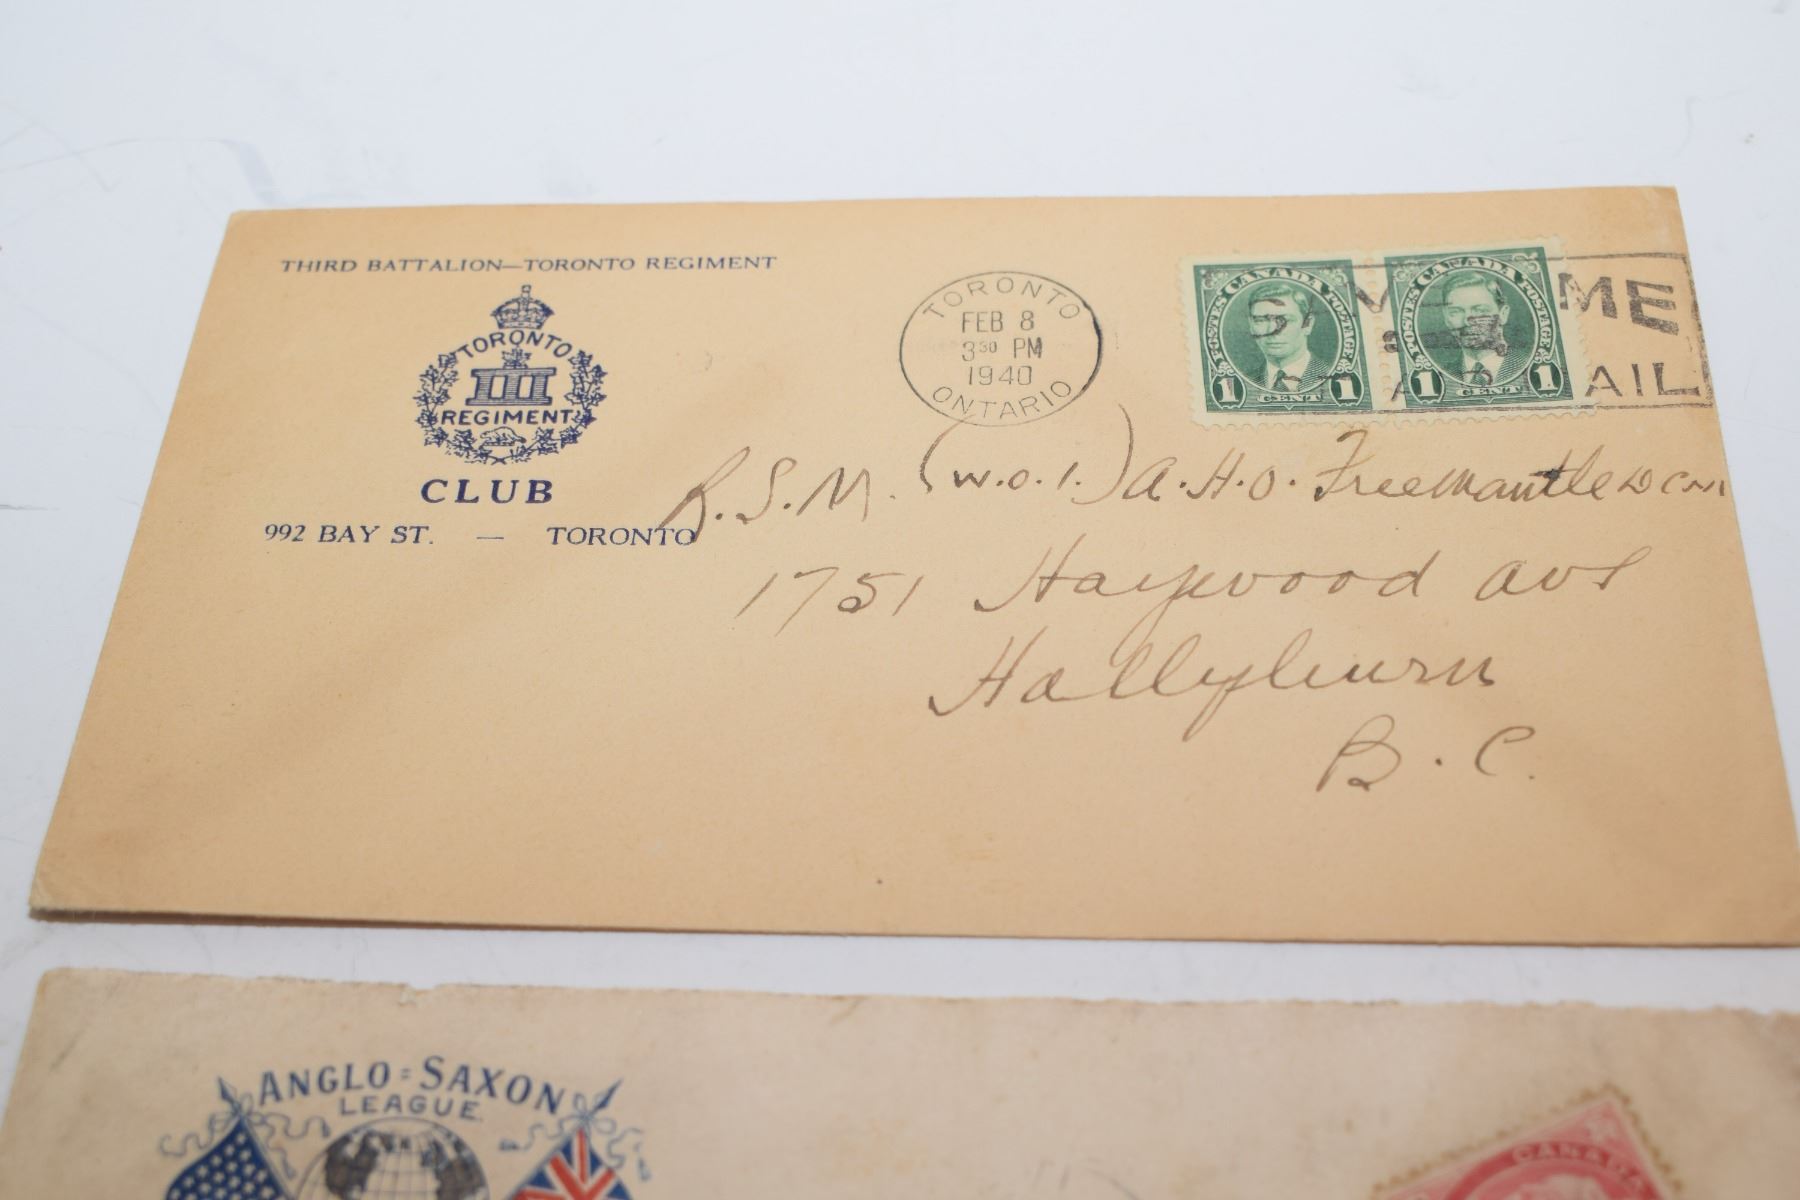 THIRD BATTALION—TORONTO REGIMENT
TORONTO
III
REGIMENT
CLUB
992 BAY ST. — TORONTO
TORONTO
FEB 8
3 30 PM
1940
ONTARIO
POSTES CANADA POSTAGE
1 CENT 1
POSTES CANADA POSTAGE
1 CENT 1
SAVE ME
MAIL
R.S.M. (W.O.1.) A.H.O. Freemantle DCM
1751 Haywood Ave
Hollyburn
B.C.
ANGLO=SAXON
LEAGUE
CANADA